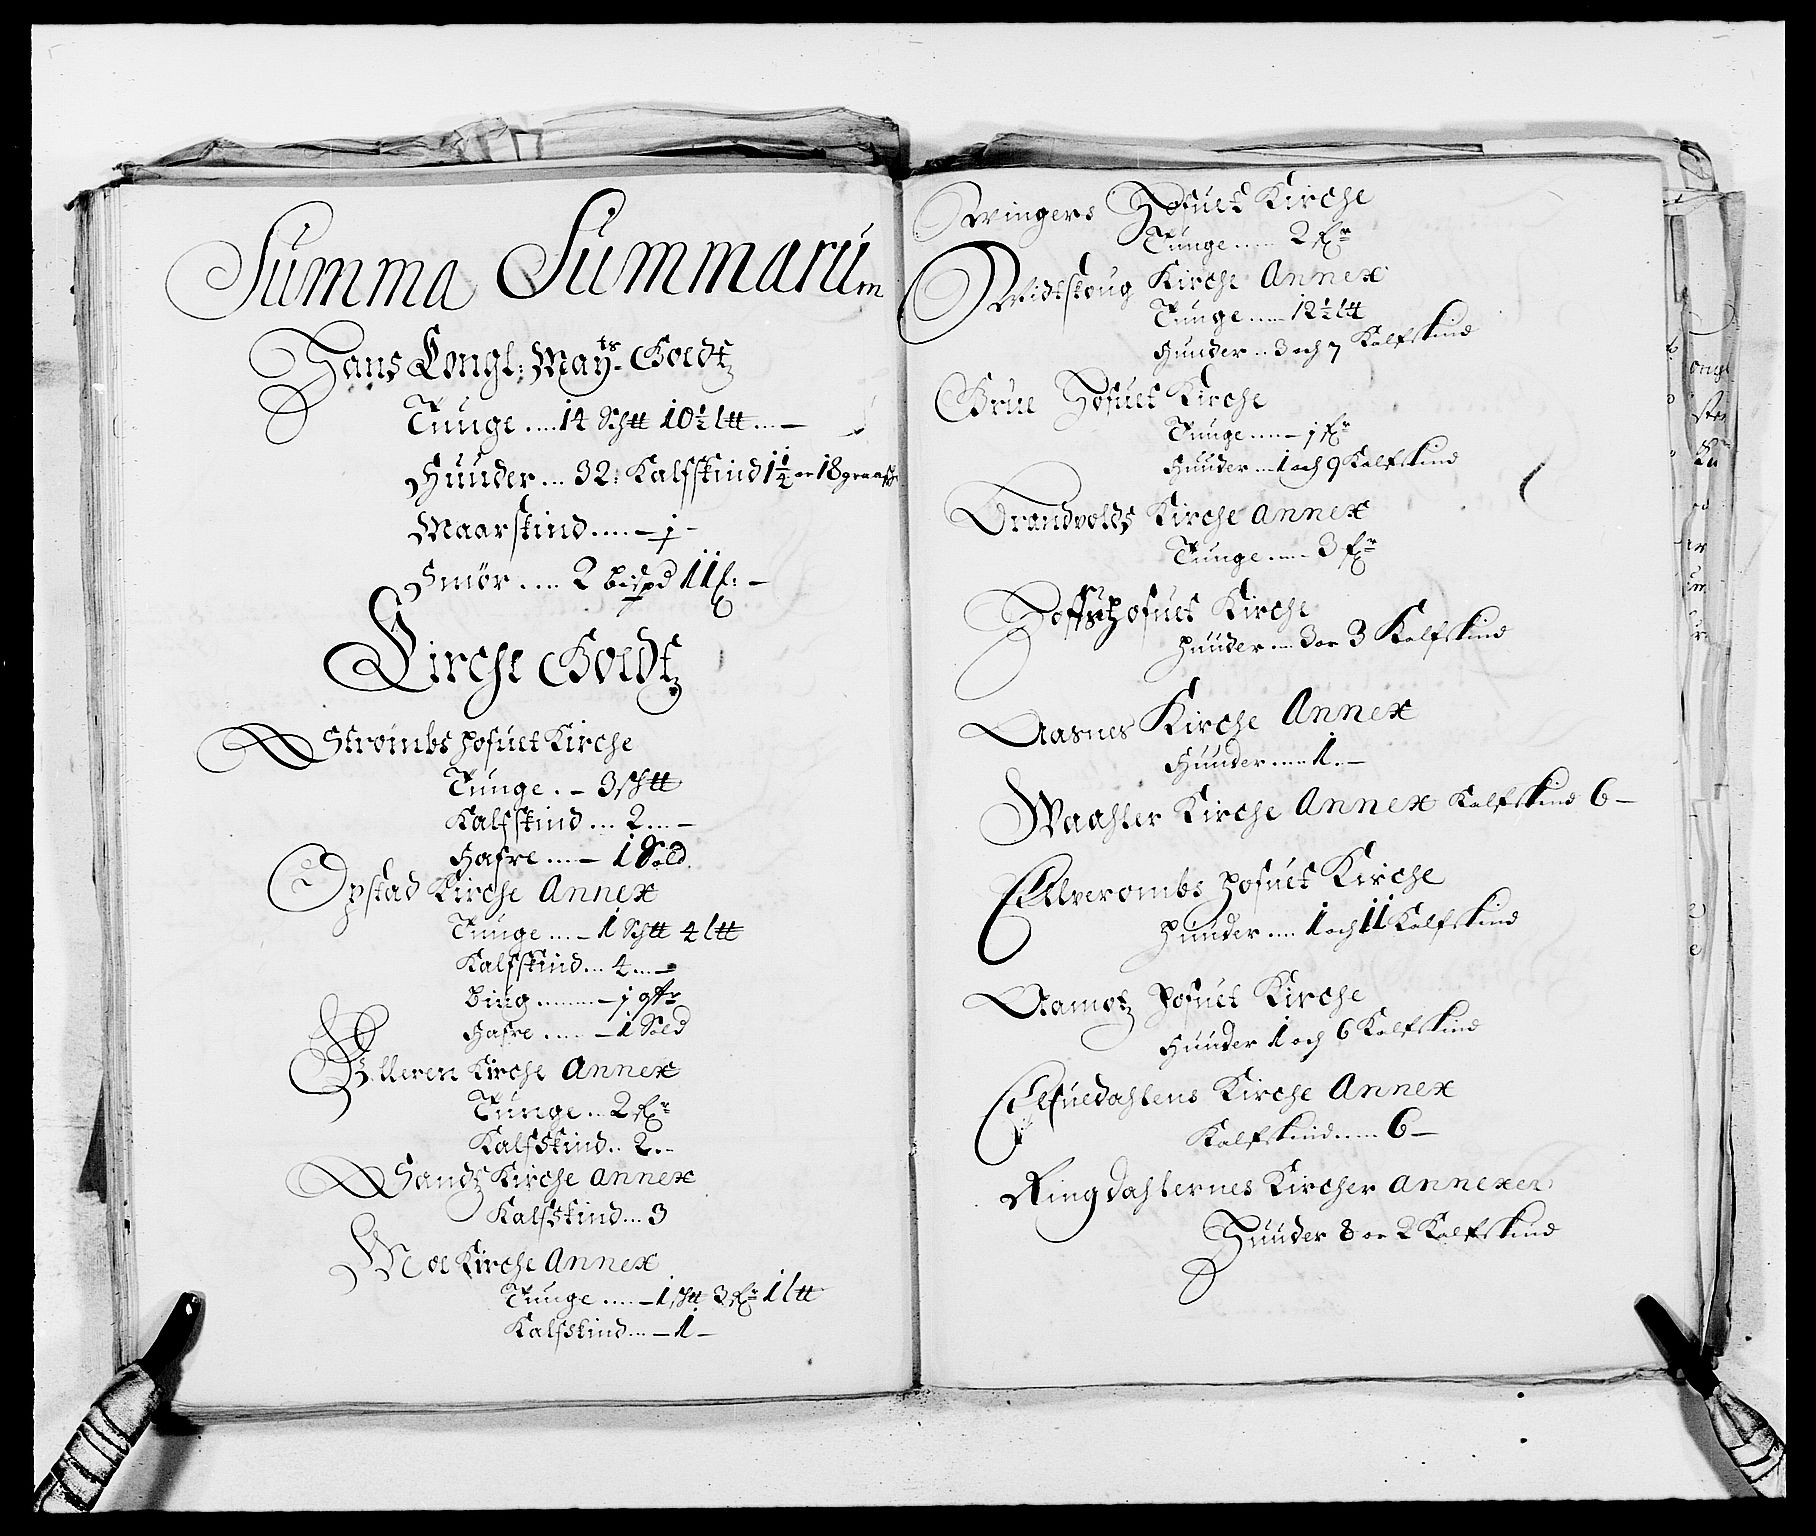 Summa Summarum
Hans Kongl: Mayts. Goedtz
Tunge .... 14 Schtt 10½ ltt ... —
Huuder ... 32: Kalfskind 1¼ oc 18 graaskind
Maarskind ..... — j —
Smör .... 2 bispd 11 f: —
Kirche Goedtz
Strombs Hofuet Kirche
Tunge .. — 3 Schtt
Kalfskind ... 2 ... —
Hafre .... — 1 Sold
Opstad Kirche Annex
Tunge ... — 1 Schtt 4 ltt
Kalfskind ... 4 ... —
biug ........ — j qtr
Hafre ..... — 1 Sold
Ulleren Kirche Annex
Tunge .. 2 fr
Kalfskind .. 2 .. —
Sandz Kirche Annex
Kalfskind ... 3
Moe Kirche Annex
Tunge ..... — 1 Schtt 3 fr 1 ltt
Kalfskind ... — 1 —
Wingers Hofuet Kirche
Tunge ..... 2 fr
Widtskoug Kirche Annex
Tunge ..... 12½ ltt
Huuder .. 3 och 7 Kalfskind
Grue Hofuet Kirche
Tunge ..... — j fr
Huuder ... 1 och 9 Kalfskind
Brandvolds Kirche Annex
Tunge ..... 3 fr
Hoffs Hofuet Kirche
Huuder ... 3 oc 3 Kalfskind
Aasnes Kirche Annex
Huuder .... 1 . —
Waahler Kirche Annex Kalfskind 6 —
Ellverombs Hofuet Kirche
Huuder .... 1 och 11 Kalfskind
Aamotz Hofuet Kirche
Huuder 1 och 6 Kalfskind
Elfuedahlens Kirche Annex
Kalfskind ..... 6 —
Ringdahlernes Kircher Annexer
Huuder 8 oc 2 Kalfskind